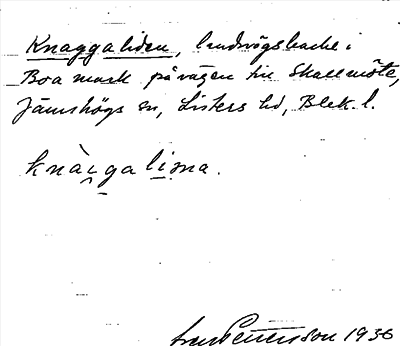 Knaggaliden, landsvägsbacke i
Boa mark på vägen till Skallmöte,
Jämshögs sn, Listers hd, Blek. l.
knàgga lima.
Pettersson 1936